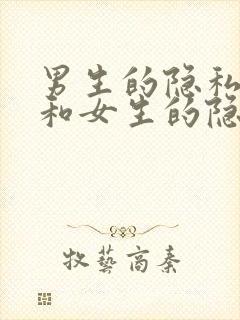 男生的隐私
和女生的隐
牧藝高秦